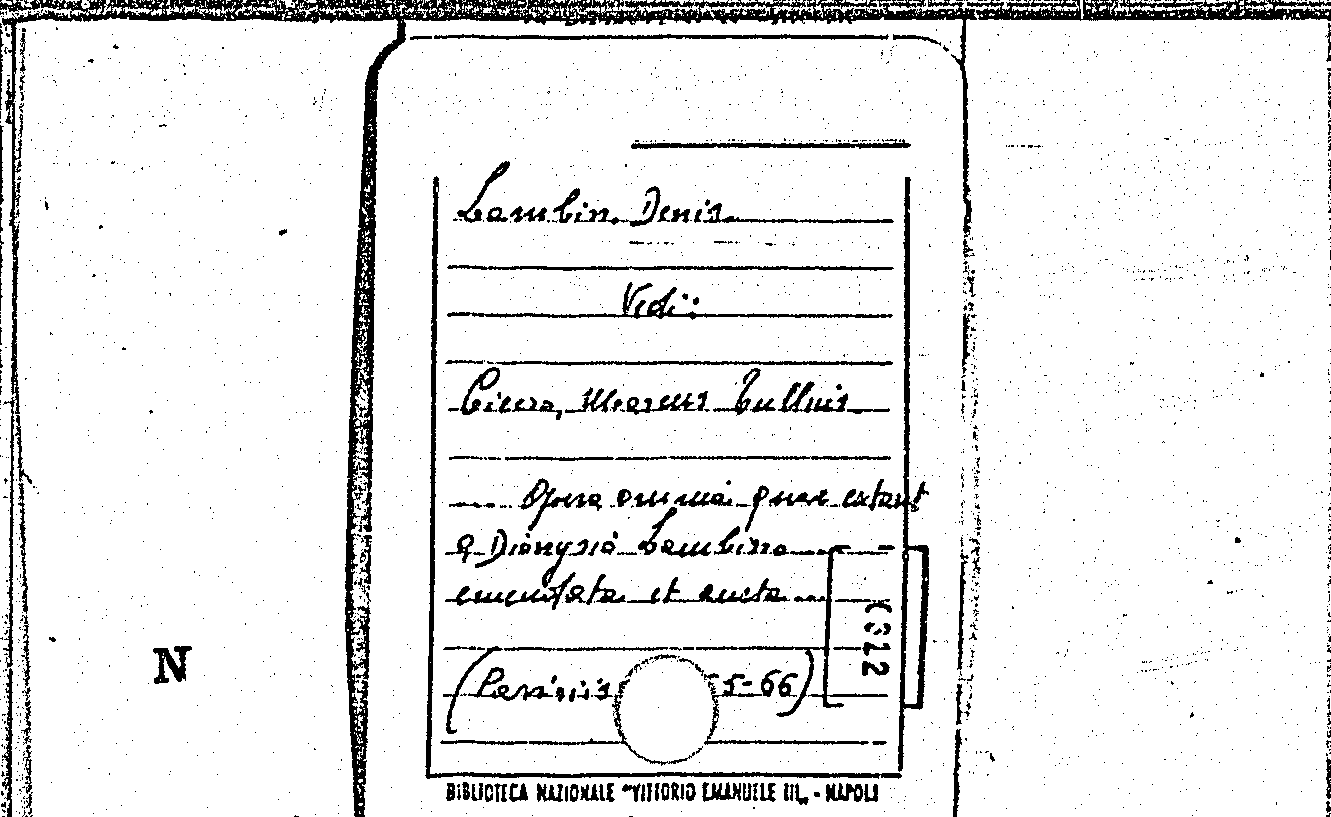 Lambin, Denis.
Vedi:
Cicero, Marcus Tullius.
.... Opera omnia quae extant
a Dionysio Lambino ....
emendata et aucta ....
(Parisiis 5-66)
N
BIBLIOTECA NAZIONALE "VITTORIO EMANUELE III„ - NAPOLI